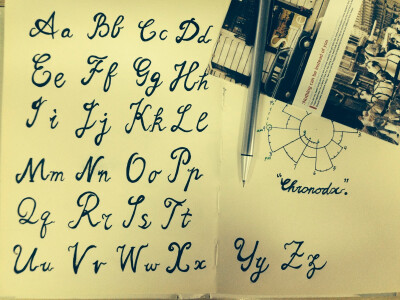 Aa Bb Cc Dd
Ee Ff Gg Hh
Ii Jj Kk Ll
Mm Nn Oo Pp
Qq Rr Ss Tt
Uu Vv Ww Xx
"Chronodx".
Yy Zz